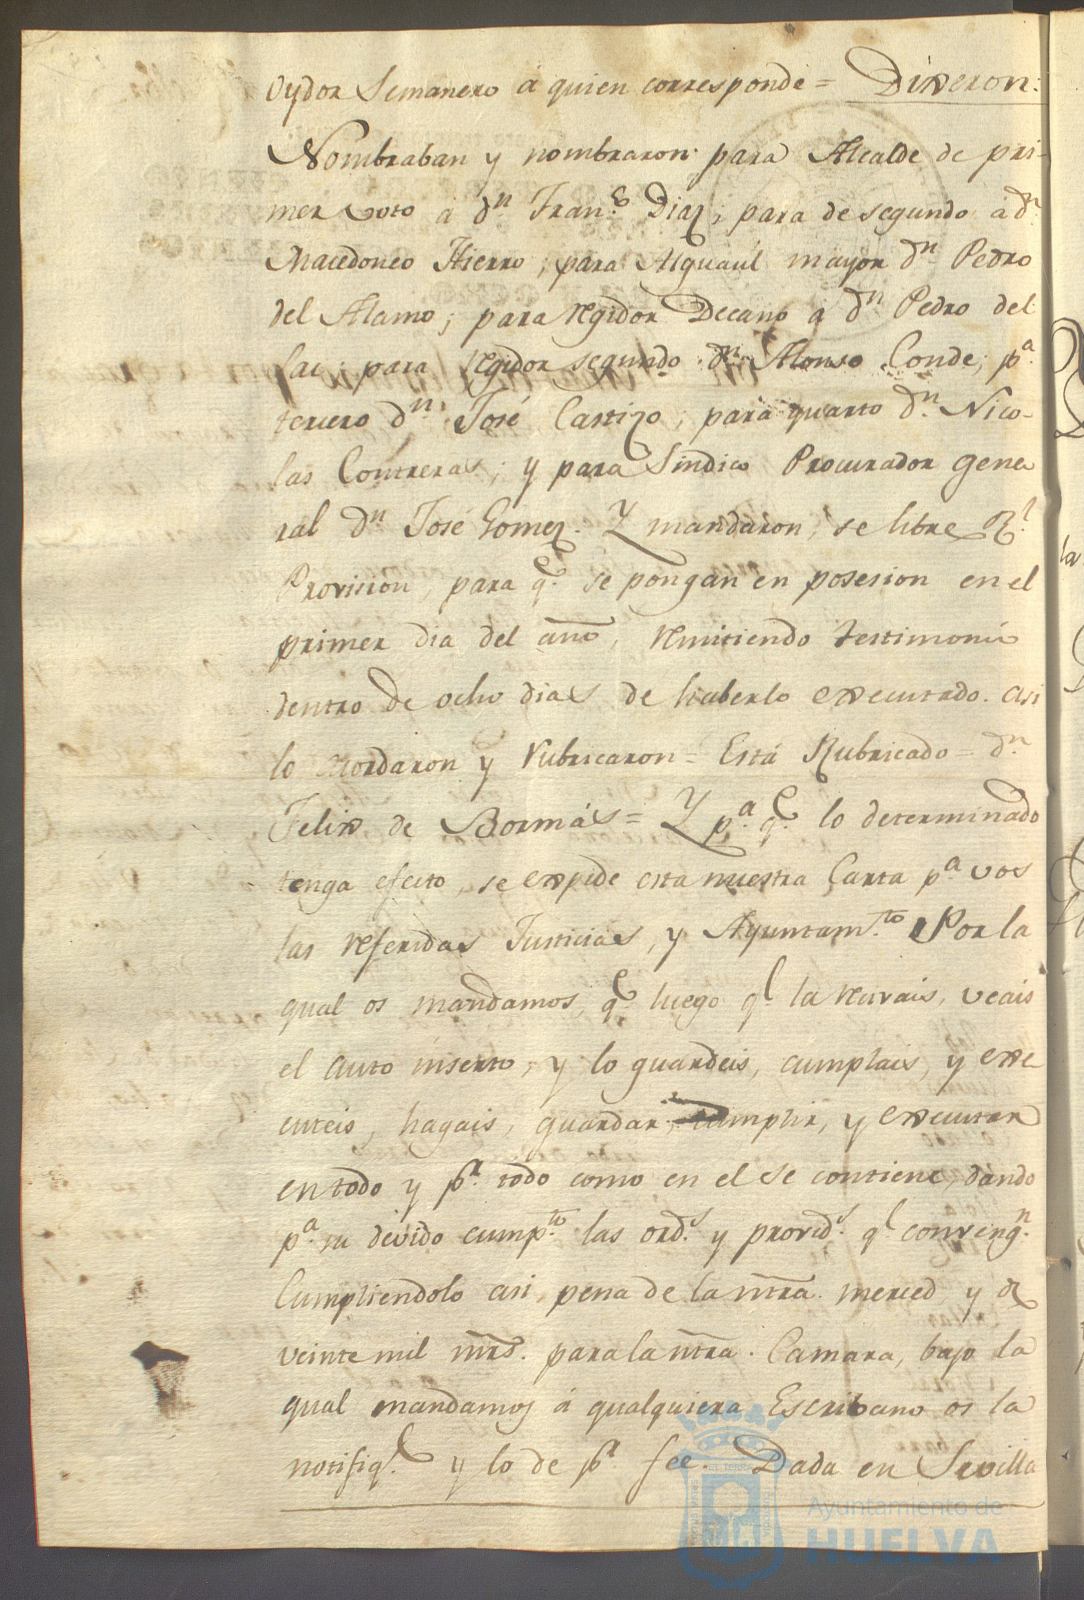 Oydor Semanero á quien corresponde = Dixeron:
Nombraban y nombraron para Alcalde de pri-
mer voto á dn. Franco. Diaz; para de segundo á dn.
Macedoneo Hierro; para Alguaúl mayor dn. Pedro
del Alamo; para Regidor Decano á dn. Pedro del
Lac; para Regidor segundo dn. Alonso Conde; pa.
tercero dn. José Castizo; para quarto dn. Nico-
las Contreras; y para Sindico Procurador gene
ral dn. José Gomez. Y mandaron, se libre Rl.
Provision, para qe. se pongan en posesion en el
primer dia del año, remitiendo testimonio
dentro de ocho dias de haberlo executado. asi
lo acordaron y rubricaron = Está Rubricado = dn.
Felix de Bormás = Y pa. qe. lo determinado
tenga efecto, se expide esta nuestra Carta pa. vos
las referidas Justicias, y Ayuntamto. Por la
qual os mandamos, qe. luego qe. la recivais, veais
el auto inserto, y lo guardeis, cumplais, y exe
cuteis, hagais, guardar, cumplir, y executar
en todo y pr. todo como en el se contiene, dando
pa. su devido cumpto. las ords. y provids. qe. convengn.
Cumpliendolo asi, pena de la ntra. merced, y de
veinte mil mrs. para la ntra. Camara, bajo la
qual mandamos á qualquiera Escribano os la
notifiqe. y lo de pr. fee. Dada en Sevilla
Ayuntamiento de
HUELVA